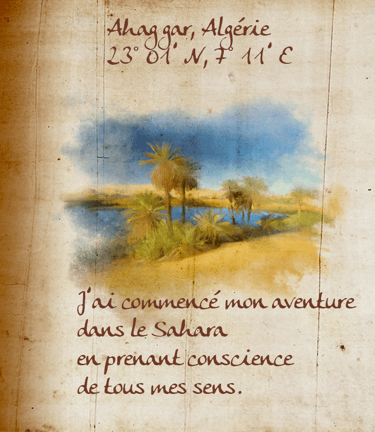 Ahaggar, Algérie
23° 01' N, 7° 11' E
J'ai commencé mon aventure
dans le Sahara
en prenant conscience
de tous mes sens.